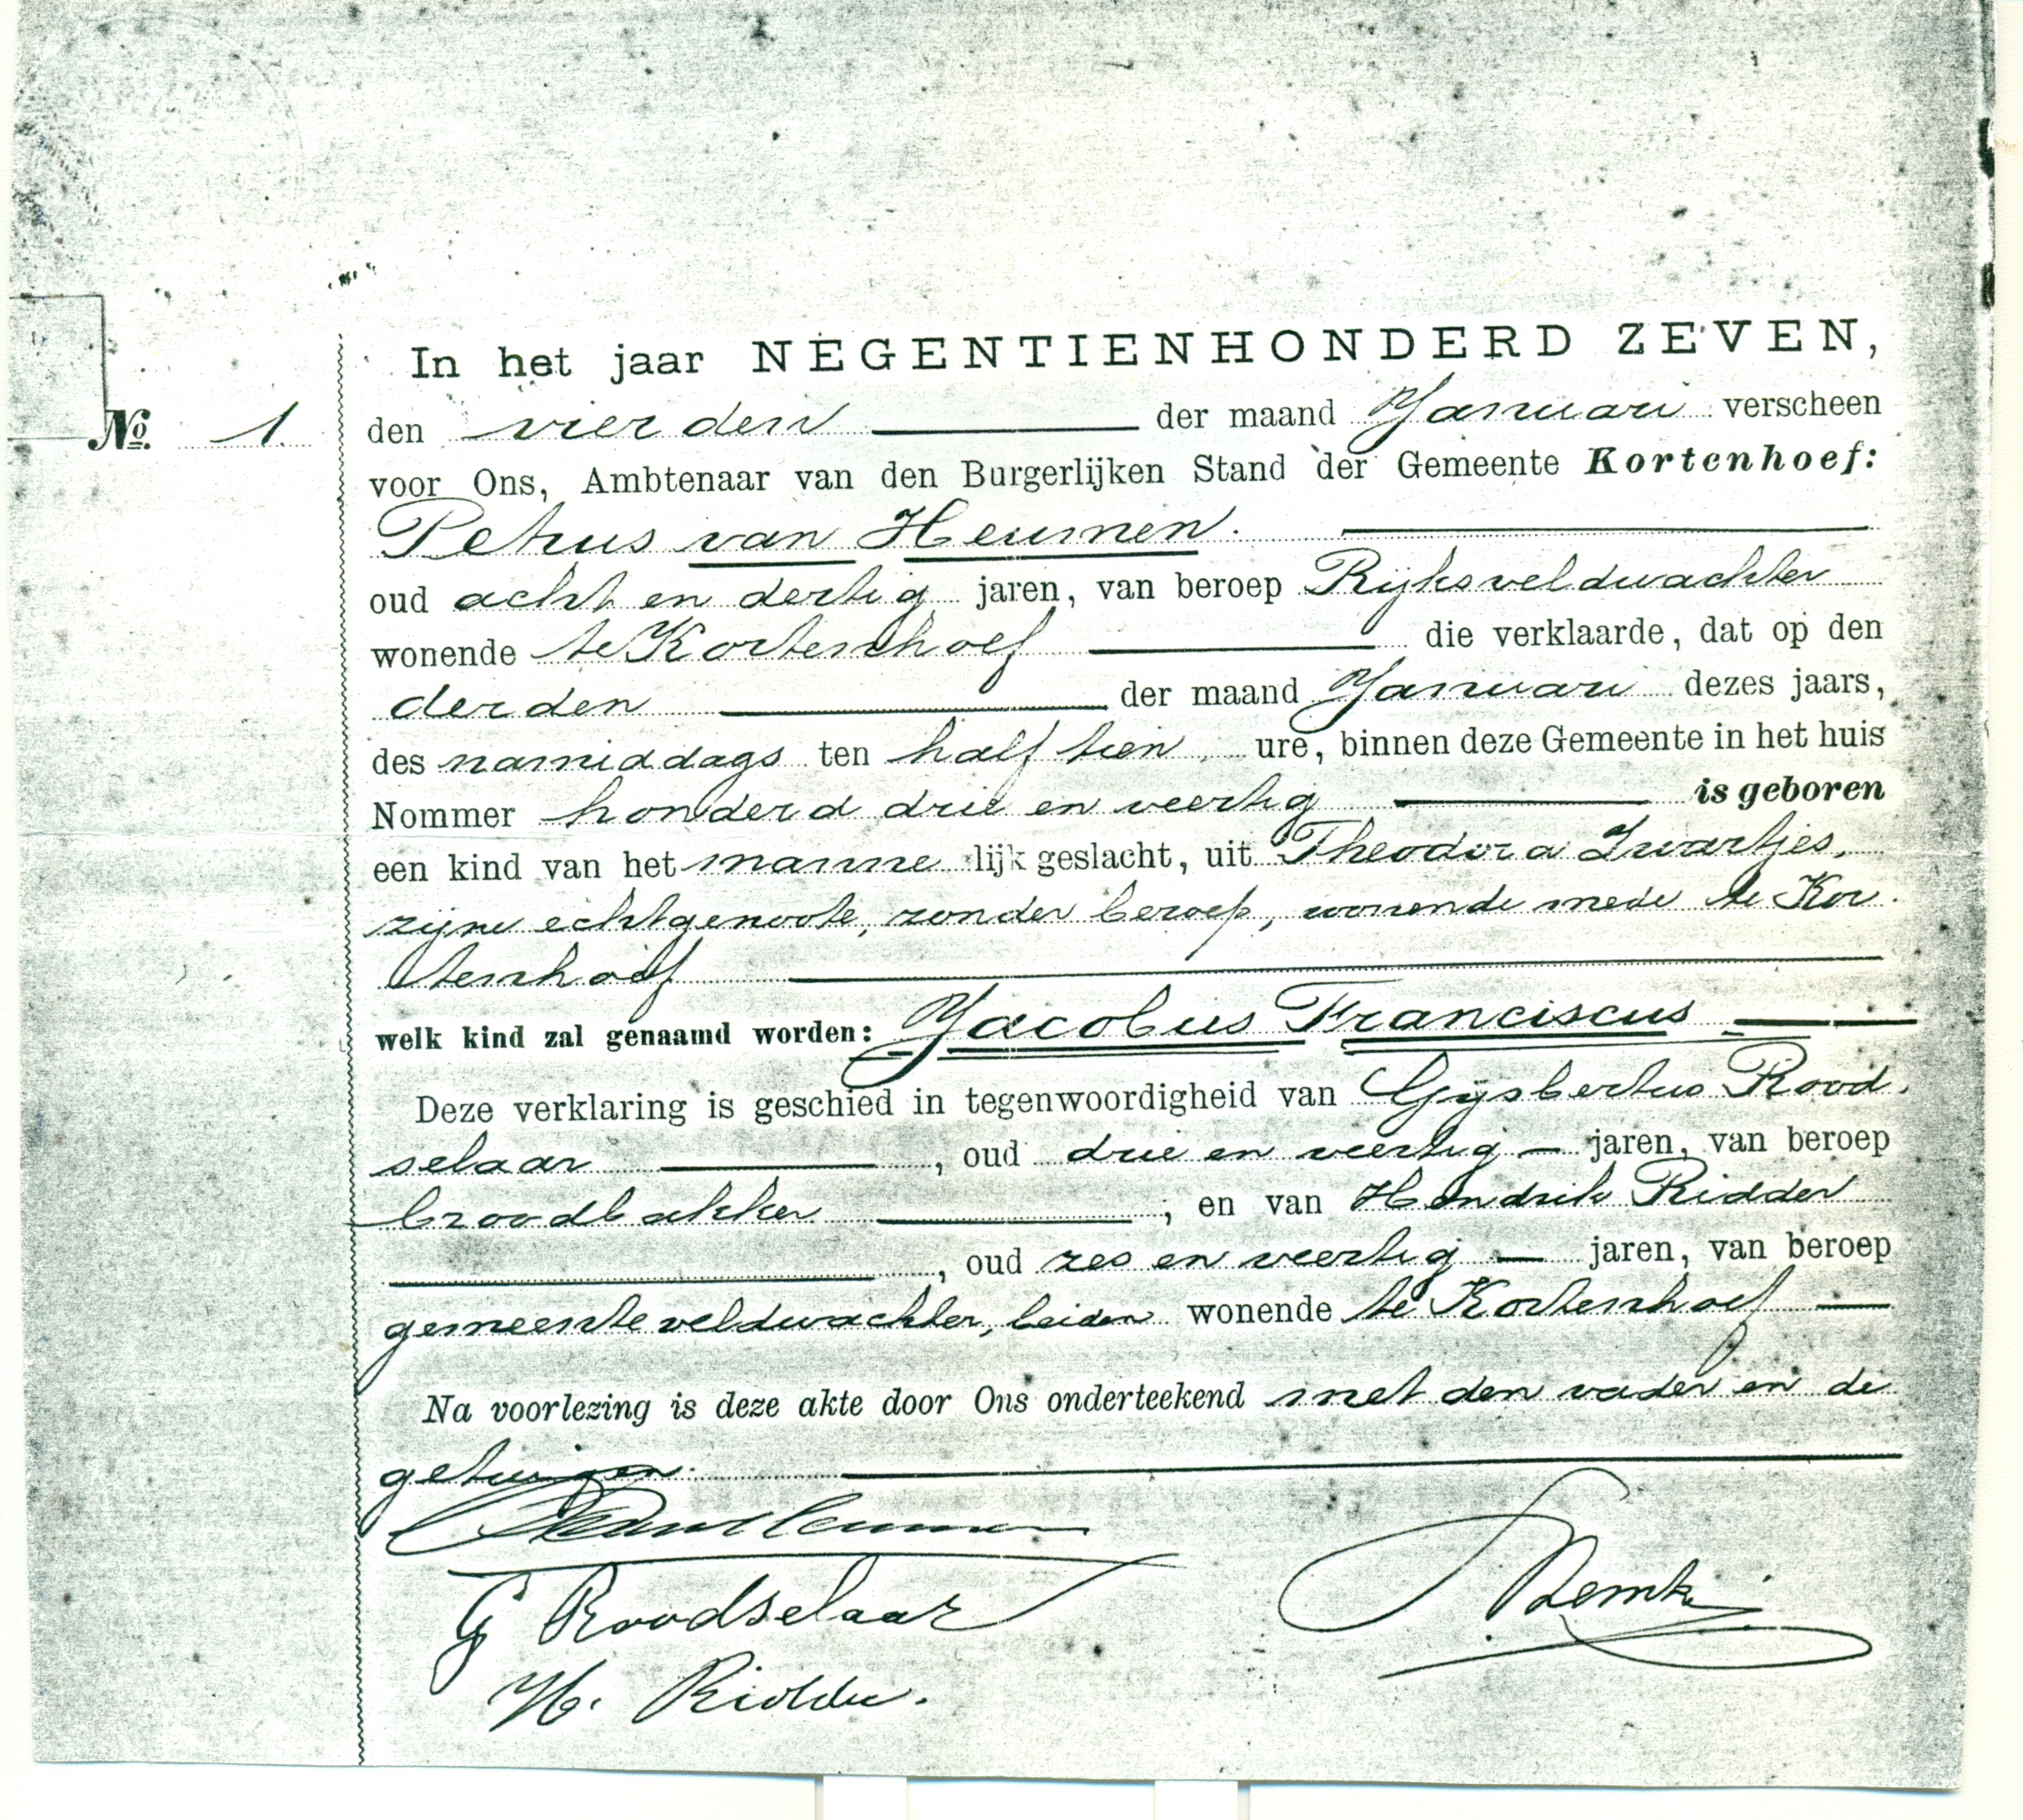 In het jaar NEGENTIENHONDERD ZEVEN,
No. 1. den vierden der maand Januari verscheen
voor Ons, Ambtenaar van den Burgerlijken Stand der Gemeente Kortenhoef:
Petrus van Heumen.
oud acht en dertig jaren, van beroep Rijksveldwachter
wonende te Kortenhoef die verklaarde, dat op den
derden der maand Januari dezes jaars,
des namiddags ten half tien ure, binnen deze Gemeente in het huis
Nommer honderd drie en veertig is geboren
een kind van het manne lijk geslacht, uit Theodora Zwartjes,
zijne echtgenoote, zonder beroep, wonende mede te Kor
tenhoef
welk kind zal genaamd worden: Jacobus Franciscus
Deze verklaring is geschied in tegenwoordigheid van Gijsbertus Rood
selaar, oud drie en veertig jaren, van beroep
broodbakker; en van Hendrik Ridder
, oud zes en veertig jaren, van beroep
gemeenteveldwachter, beiden wonende te Kortenhoef
Na voorlezing is deze akte door Ons onderteekend met den vader en de
getuigen.
G Roodselaar
H. Ridder.